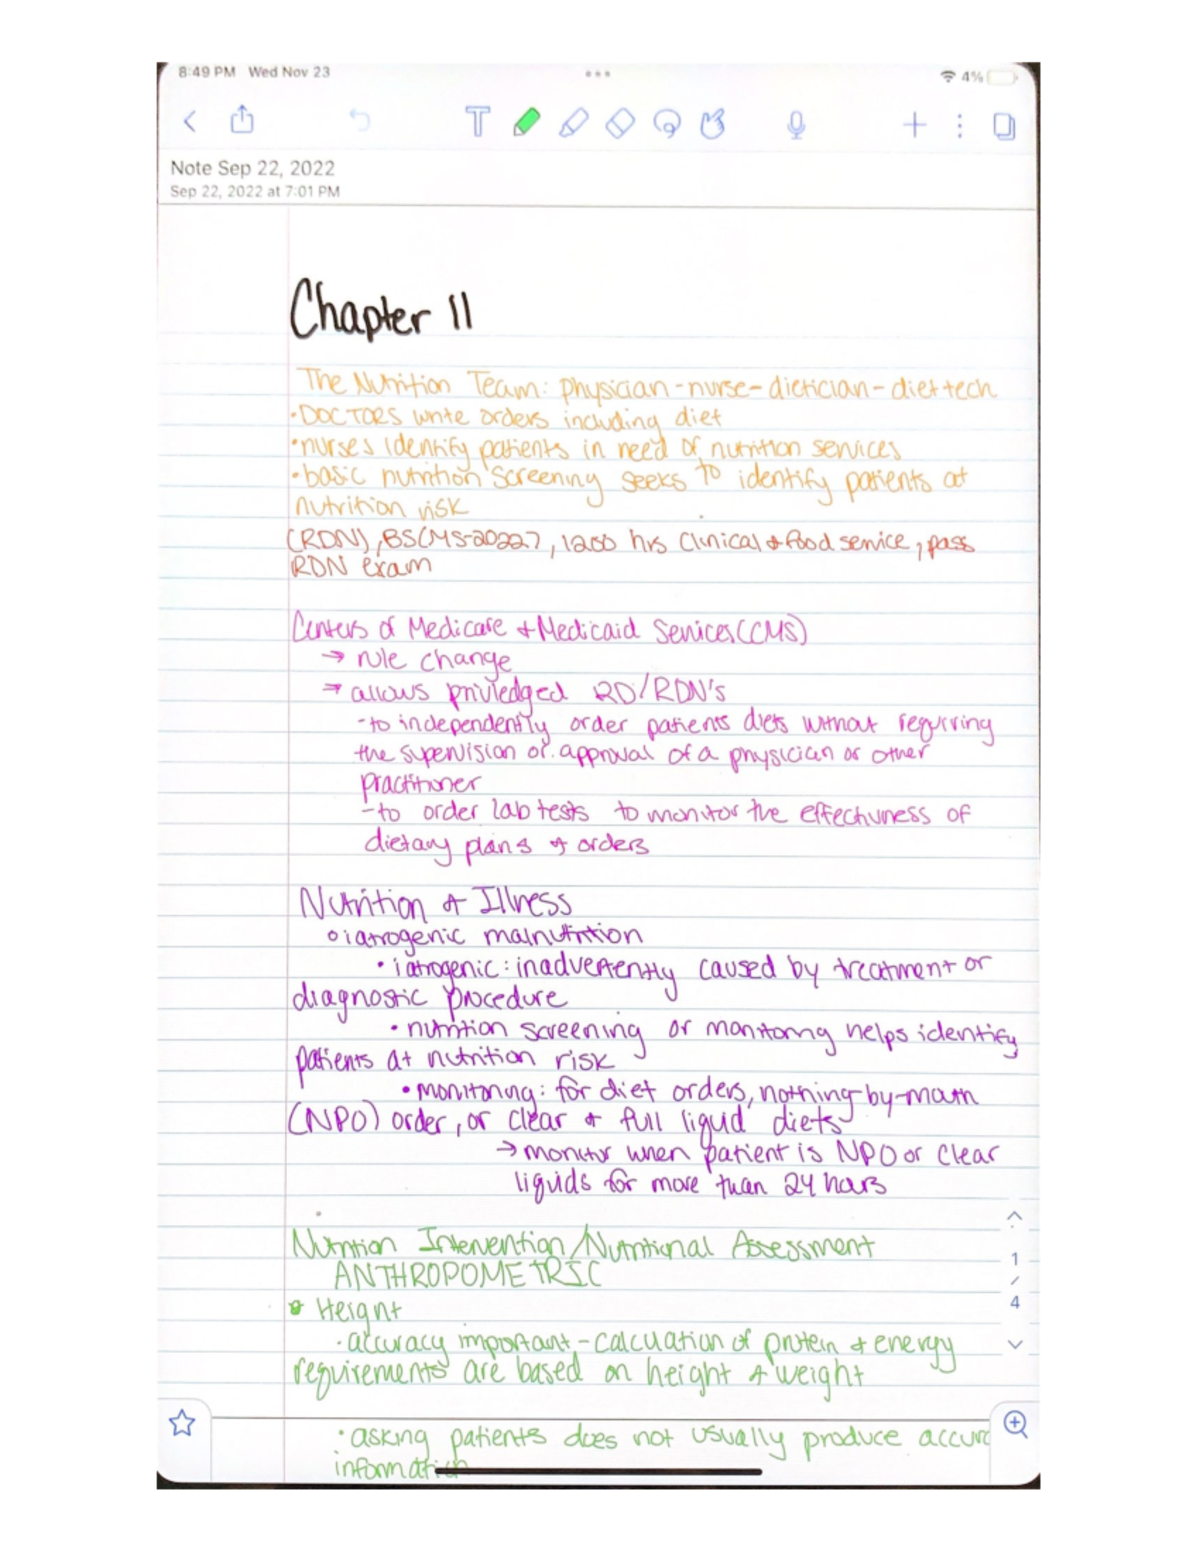 8:49 PM Wed Nov 23
4%
Note Sep 22, 2022
Sep 22, 2022 at 7:01 PM
Chapter 11
The Nutrition Team: physician-nurse-dietician-diet tech
•DOCTORS write orders including diet
•nurses identify patients in need of nutrition services
•basic nutrition screening seeks to identify patients at
nutrition risk
(RDN), BS(MS-2022?, 1200 hrs clinical & food service, pass
RDN exam
Centers of Medicare & Medicaid Services(CMS)
→ rule change
→ allows priviledged RD/RDN's
-to independently order patients diets without requiring
the supervision or approval of a physician or other
practitioner
-to order lab tests to monitor the effectiveness of
dietary plans & orders
Nutrition & Illness
○iatrogenic malnutrition
•iatrogenic: inadvertently caused by treatment or
diagnostic procedure
•nutrition screening or monitoring helps identify
patients at nutrition risk
•monitoring: for diet orders, nothing-by-mouth
(NPO) order, or clear & full liquid diets
→monitor when patient is NPO or clear
liquids for more than 24 hours
Nutrition Intervention/Nutritional Assessment
ANTHROPOMETRIC
Height
•accuracy important-calculation of protein & energy
requirements are based on height & weight
•asking patients does not usually produce accura
information
1
/
4